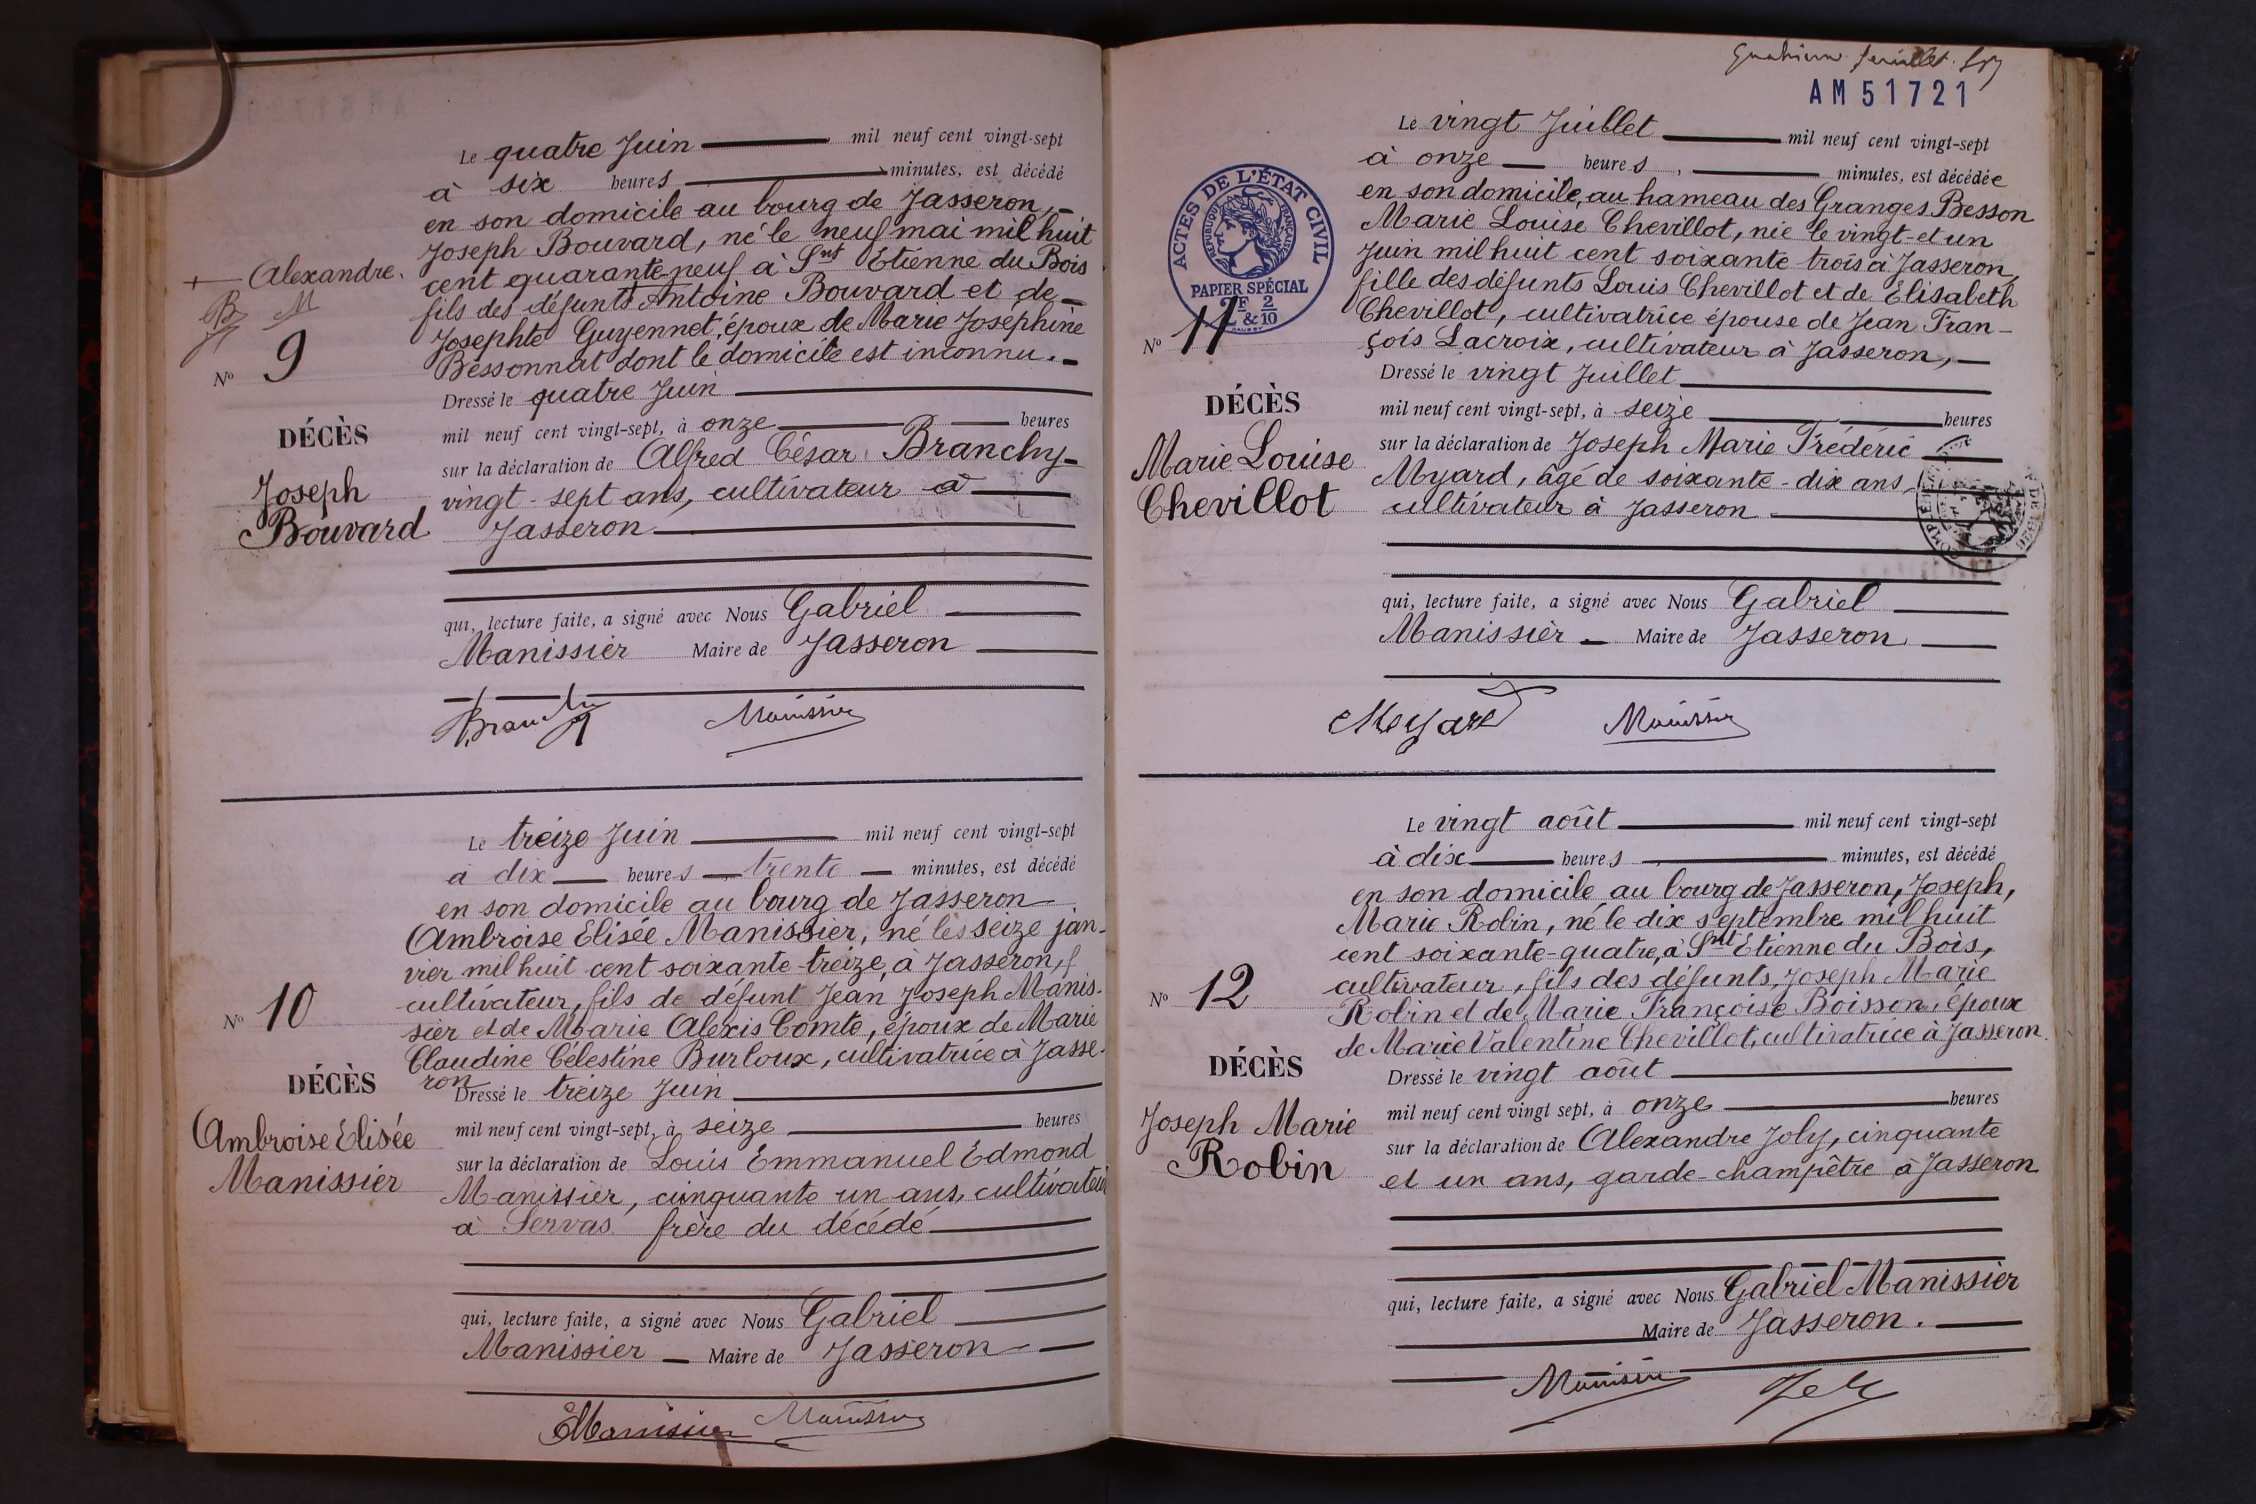 Le quatre Juin mil neuf cent vingt-sept
à six heures minutes, est décédé
en son domicile au bourg de Jasseron,
Joseph Bouvard, né le neuf mai mil huit
cent quarante-neuf à Snt Etienne du Bois
fils des défunts Antoine Bouvard et de
Josephte Guyennet, époux de Marie Joséphine
Bessonnat dont le domicile est inconnu.
Dressé le quatre Juin
mil neuf cent vingt-sept, à onze heures
sur la déclaration de Alfred César Branchy
vingt-sept ans, cultivateur à
Jasseron
qui, lecture faite, a signé avec Nous Gabriel
Manissier Maire de Jasseron
Branchy Manissier
Alexandre.
No 9
DÉCÈS
Joseph
Bouvard
Le treize Juin mil neuf cent vingt-sept
à dix heures trente minutes, est décédé
en son domicile au bourg de Jasseron
Ambroise Elisée Manissier, né le seize jan-
vier mil huit cent soixante-treize, à Jasseron,
cultivateur, fils de défunt Jean Joseph Manis-
sier et de Marie Alexis Comte, époux de Marie
Claudine Célestine Burloux, cultivatrice à Jasse-
ron
Dressé le treize Juin
mil neuf cent vingt-sept, à seize heures
sur la déclaration de Louis Emmanuel Edmond
Manissier, cinquante un ans, cultivateur
à Servas frère du décédé
qui, lecture faite, a signé avec Nous Gabriel
Manissier Maire de Jasseron
EManissier Manissier
No 10
DÉCÈS
Ambroise Elisée
Manissier
Quatrième feuillet
AM51721
Le vingt Juillet mil neuf cent vingt-sept
à onze heures, minutes, est décédée
en son domicile, au hameau des Granges Besson
Marie Louise Chevillot, née le vingt-et un
Juin mil huit cent soixante trois à Jasseron,
fille des défunts Louis Chevillot et de Elisabeth
Chevillot, cultivatrice épouse de Jean Fran-
çois Lacroix, cultivateur à Jasseron,
Dressé le vingt Juillet
mil neuf cent vingt-sept, à seize heures
sur la déclaration de Joseph Marie Frédéric
Myard, âgé de soixante-dix ans,
cultivateur à Jasseron
qui, lecture faite, a signé avec Nous Gabriel
Manissier Maire de Jasseron
Myard Manissier
ACTES DE L'ÉTAT CIVIL
RÉPUBLIQUE FRANÇAISE
PAPIER SPÉCIAL
2F & 2/10
No 11
DÉCÈS
Marie Louise
Chevillot
Le vingt août mil neuf cent vingt-sept
à dix heures minutes, est décédé
en son domicile au bourg de Jasseron, Joseph,
Marie Robin, né le dix septembre mil huit
cent soixante-quatre, à Snt Etienne du Bois,
cultivateur, fils des défunts, Joseph Marie
Robin et de Marie Françoise Boisson, époux
de Marie Valentine Chevillot, cultivatrice à Jasseron.
Dressé le vingt août
mil neuf cent vingt sept, à onze heures
sur la déclaration de Alexandre Joly, cinquante
et un ans, garde-champêtre à Jasseron
qui, lecture faite, a signé avec Nous Gabriel Manissier
Maire de Jasseron.
Manissier Joly
No 12
DÉCÈS
Joseph Marie
Robin